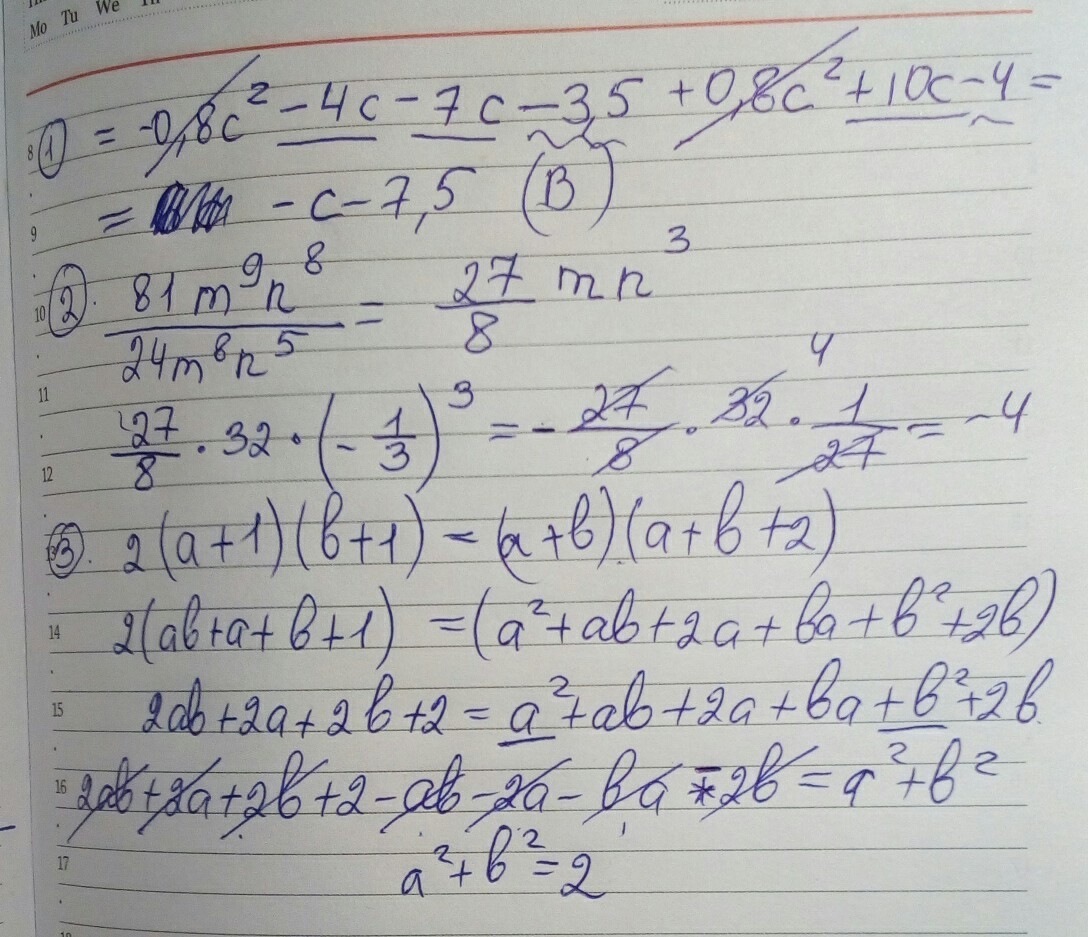 Mo Tu We
8 ① = -0,8c² - 4c - 7c - 3,5 + 0,8c² + 10c - 4 =
9 = - c - 7,5 (B)
10 ②. 81m⁹n⁸/24m⁸n⁵ = 27/8 mn³
11
12 27/8 · 32 · (-1/3)³ = - 27/8 · 32 · 1/27 = -4
4
13 ③. 2(a+1)(b+1) = (a+b)(a+b+2)
14 2(ab+a+b+1) = (a²+ab+2a+ba+b²+2b)
15 2ab+2a+2b+2 = a²+ab+2a+ba+b²+2b
16 2ab+2a+2b+2-ab-2a-ba-2b = a²+b²
17 a²+b²=2